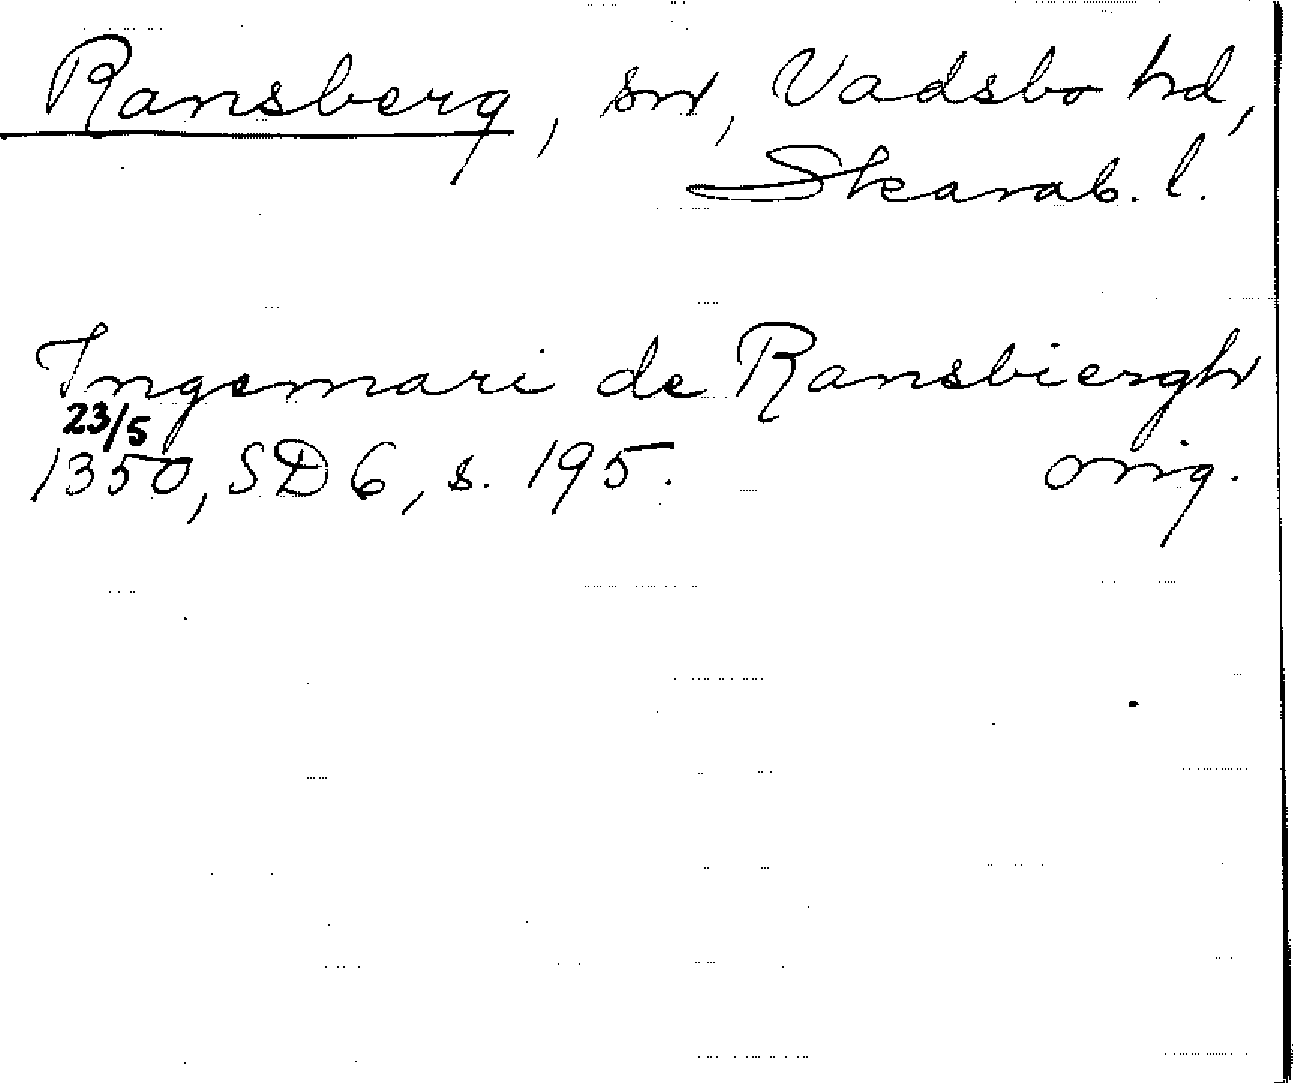 Ransberg, sn, Vadsbo hd,
Skarab. l.
Ingemari de Ransbiergh
23/5
1350, SD 6, s. 195. orig.